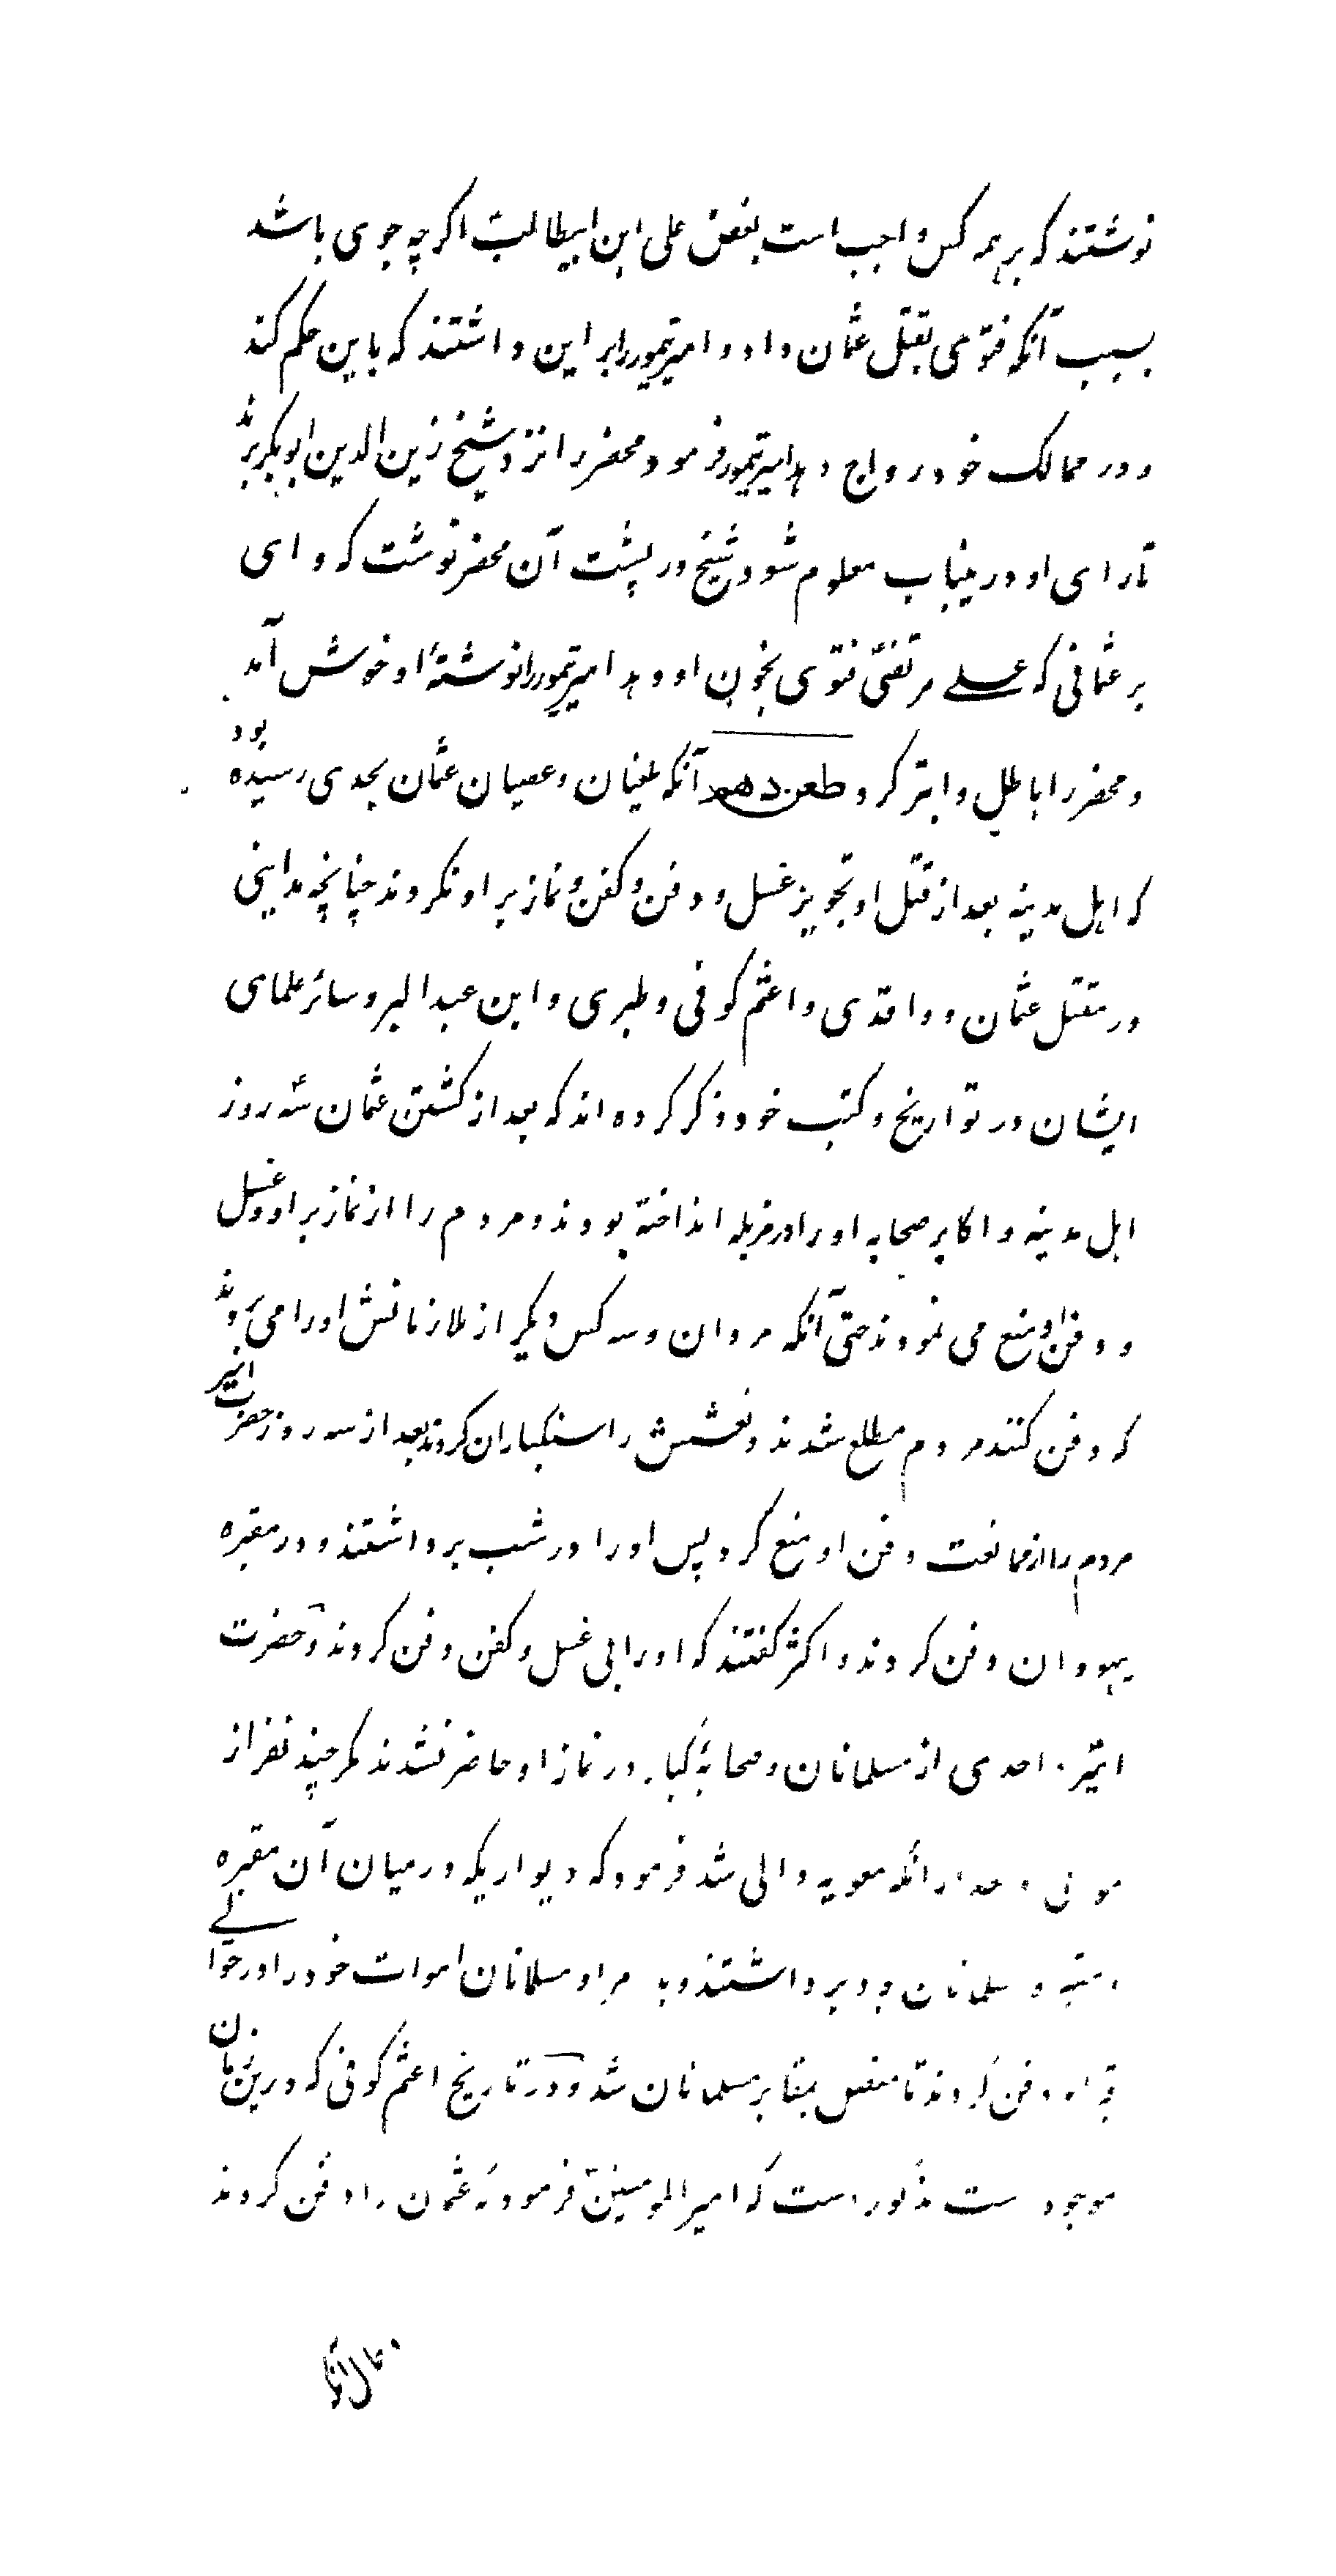 نوشتند که بر همه کس واجب است بغض علی ابن ابیطالب اکر چه جوی باشد
بسبب آنکه فتوی بقتل عثمان داد و امیر تیمور را بر این داشتند که باین حکم کند
و در ممالک خود رواج دهد امیر تیمور فرمود محضر را نزد شیخ زین الدین ابوبکر برند
تا رای او در ینباب معلوم شود شیخ در پشت آن محضر نوشت که وای
بر عثمانی که علے مرتضی فتوی بخون او دهد امیر تیمور را نوشتهٔ او خوش آمد
و محضر را باطل و ابتر کرد طعن دهم آنکه طغیان و عصیان عثمان بحدی رسیده بود
که اهل مدینه بعد از قتل او تجویز غسل و دفن و کفن و نماز بر او نکردند چنانچه مداینی
در مقتل عثمان و واقدی و اعثم کوفی و طبری و ابن عبد البر و سائر علمای
ایشان در تواریخ و کتب خود ذکر کرده اند که بعد از کشتن عثمان سه روز
اهل مدینه و اکابر صحابه او را در مزبله انداخته بودند و مردم را از نماز بر او و غسل
و دفن او منع می نمودند حتی آنکه مروان و سه کس دیکر از ملازمانش او را می بردند
که دفن کنند مردم مطلع شدند و نعشش را سنکباران کردند بعد از سه روز حضرت امیر
مردم را از ممانعت دفن او منع کرد پس او را در شب برداشتند و در مقبره
یهودان دفن کردند و اکثر کفتند که او را بی غسل و کفن دفن کردند و حضرت
امیر احدی از مسلمانان و صحابهٔ کبار در نماز او حاضر نشدند مکر چند نفر از
و معویه والی شد فرمود که دیواریکه در میان آن مقبره
و مسلمانان بود برداشتند و مسلمانان اموات خود را در حوالے
قبر او دفن کردند تا متصل بمقابر مسلمانان شد و در تاریخ اعثم کوفی که درین زمان
موجود است مذکور است که امیر المومنین فرمود که عثمان را دفن کردند